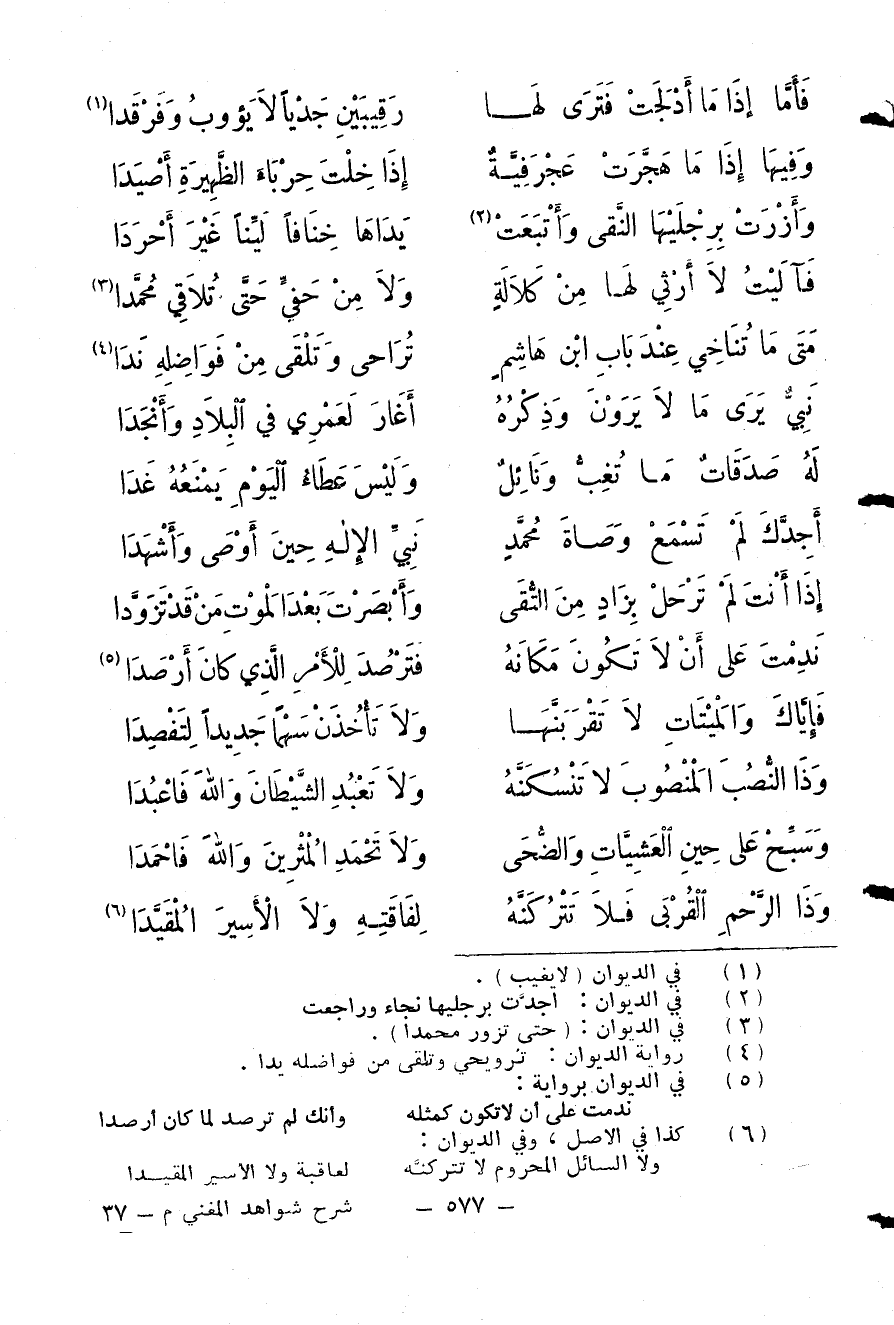 فَأَمَّا إِذَا مَا أَدْلَجَتْ فَتَرَى لَهَـــا رَقِيبَيْنِ جَدْياً لاَ يَؤُوبُ وَفَرْقَدا (١)
وَفِيهَا إِذَا مَا هَجَّرَتْ عَجْرَفِيَّـةٌ إِذَا خِلْتَ حِرْبَاءَ الظَّهِيرَةِ أَصْيَدَا
وَأَزْرَتْ بِرِجْلَيْهَا النَّقى وَأَتْبَعَتْ (٢) يَدَاهَا خِنَافاً لَيِّناً غَيْرَ أَحْرَدَا
فَآلَيْتُ لاَ أَرْثِي لَهَـا مِنْ كَلاَلَةٍ وَلاَ مِنْ حَفيٍّ حَتَّى تُلاَقِي مُحَمَّدا (٣)
مَتَى مَا تُنَاخِي عِنْدَ بَابِ ابْنِ هَاشِمٍ تُرَاحى وَتَلْقَى مِنْ فَوَاضِلِهِ نَدَا (٤)
نَبِيٌّ يَرَى مَا لاَ يَرَوْنَ وَذِكْرُهُ أَغَارَ لَعَمْرِي في الْبِلاَدِ وَأَنْجَدَا
لَهُ صَدَقَاتٌ مَـا تُغِبُّ وَنَائِلٌ وَلَيْسَ عَطَاءُ الْيَوْمِ يَمْنَعُهُ غَدَا
أَجِدَّكَ لَمْ تَسْمَعْ وَصَـاةَ مُحَمَّدٍ نَبِيِّ الإِلٰـهِ حِينَ أَوْصَى وَأَشْهَدَا
إِذَا أَنْتَ لَمْ تَرْحَلْ بِزَادٍ مِنَ التُّقَى وَأَبْصَرْتَ بَعْدَ الْمَوْتِ مَنْ قَدْ تَزَوَّدا
نَدِمْتَ عَلى أَنْ لاَ تَكُونَ مَكَانَهُ فَتَرْصُدَ لِلْأَمْرِ الَّذِي كانَ أَرْصَدَا (٥)
فَإِيَّاكَ وَالْمَيْتَاتِ لاَ تَقْرَبَنَّهَـــا وَلاَ تَأْخُذَنْ سَهْماً جَدِيداً لِتَفْصِدَا
وَذَا النُّصُبَ الْمَنْصُوبَ لا تَنْسُكَنَّهُ وَلاَ تَعْبُدِ الشَّيْطَانَ وَاللهَ فَاعْبُدَا
وَسَبِّحْ عَلى حِينِ الْعَشِيَّاتِ وَالضُّحَى وَلاَ تَحْمَدِ الْمُثْرِينَ وَاللهَ فَاحْمَدَا
وَذَا الرَّحْمِ الْقُرْبَى فَـلاَ تَتْرُكَنَّهُ لِفَاقَتِـهِ وَلاَ الْأَسِيرَ الْمُقَيَّدَا (٦)
(١) في الديوان ( لايغيب ) .
(٢) في الديوان : اجدَّت برجليها نجاء وراجعت
(٣) في الديوان : ( حتى تزور محمدا ) .
(٤) رواية الديوان : تريحي وتلقى من فواضله يدا .
(٥) في الديوان برواية :
ندمت على أن لاتكون كمثله وأنك لم ترصد لما كان أرصدا
(٦) كذا في الاصل ، وفي الديوان :
ولا السائل المحروم لا تتركنَّه لعاقبة ولا الاسير المقيـــدا
– ٥٧٧ – شرح شواهد المغني م – ٣٧